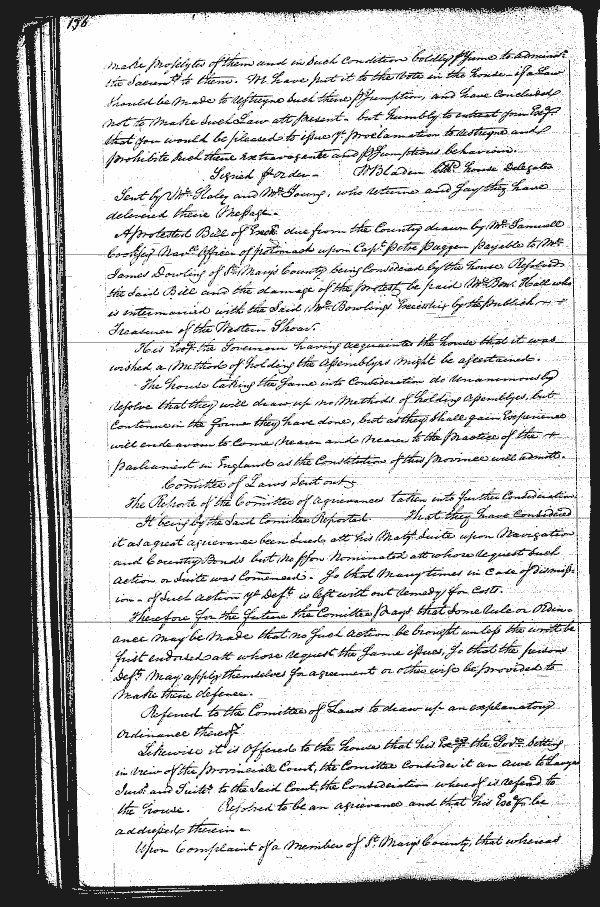 196
make proselytes of them and in such Condition boldly p'sume to administr
the Sacramts to them. We have put it to the Vote in the house if a Law
should be made to restreyne such there p'sumption, and have Concluded
not to make such Law att present. but humbly to entreat your Exēy
that you would be pleased to issue yr proclamation to restreyne and
prohibite such there extravagante and p'sumptious behaviour.
Signed p order W Bladen Clk house Delegates
Sent by Mr Staley and Mr Young, who returne and say they have
delivered theire Message.
A protested Bill of Exch: due from the Country drawn by Mr Samuell
Navll Officer of potomack upon Capt Petre Paggen payable to Mr
James Dowling of St Marys County being Considered by the house Resolved
the said Bill and the damage of the protest, be paid Mr Ben. Hall who
is intermarried with the said Mr Bowlings by the publick
Treasurer of the Western Shoar.
His Exēy the Governour having acquainted the house that it was
wished a Method of holding the Assemblyes might be ascertained.
The house taking the same into Consideration do Unanimously
resolve that they will draw up no Methods of holding Assemblyes, but
Continue in the forme they have done, but as they shall gain Experience
will endeavour to Come nearer and nearer to the practice of the
parliament in England as the Constitution of this province will admitt.
Comittee of Laws sent out
The Reporte of the Comittee of agrievances taken into further Consideration
It being by the said Comittee Reported. That they have Considered
it as a great agrievance been sued, att his Matys Suite upon Navigation
and Country Bonds but no p'son Nominated att whose request such
action or Suite was Comenced. So that Many times in Case of dismiss-
ion of such Action ye Deft is left with out remedy for Costs.
Therefore for the future the Comittee prays that some rule or Ordin-
ance may be Made that no such action be brought unless the writt be
first endorsed att whose request the same issues, so that the
Deft may apply themselves for agreement or other wise be provided to
make their defence.
Referred to the Comittee of Laws to draw up an explanatory
Ordinance thereof
Likewise it is offered to the house that his Exēy the Govr sitting
in view of the provinciall Court, the Comittee Consider it an awe to Lawyers
Jurs and Suitrs to the said Court, the Consideration whereof is referd to
the house. Resolved to be an agrievance and that his Exēy be
addressed therein
Upon Complaint of a Member of St Marys County, that whereas